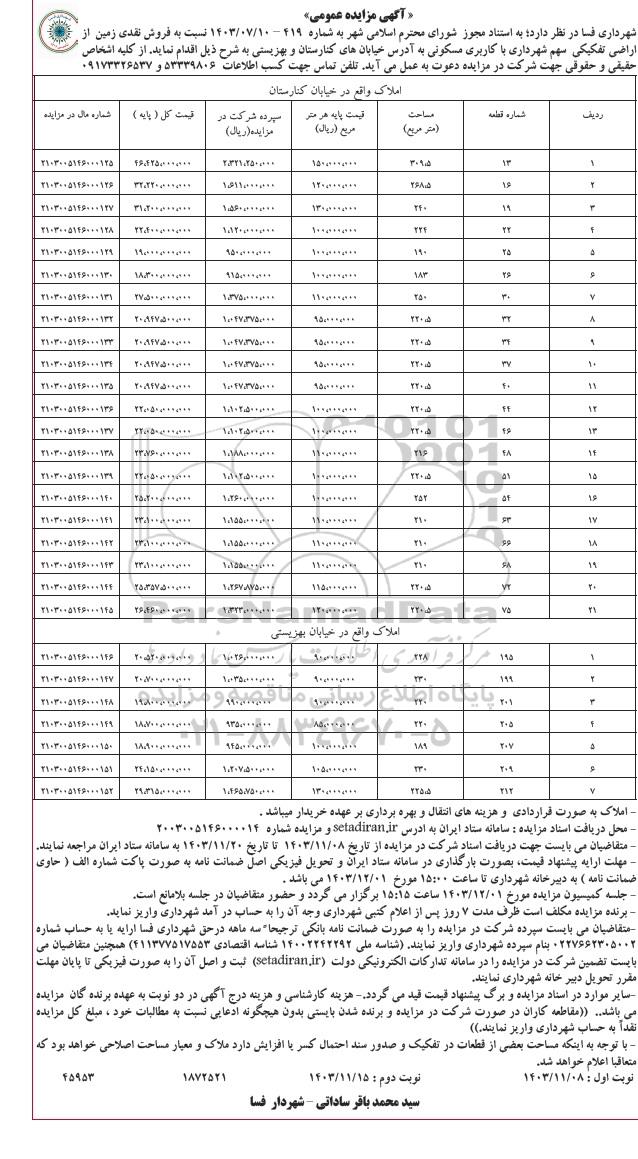 « آگهی مزایده عمومی»
شهرداری فسا در نظر دارد؛ به استناد مجوز شورای محترم اسلامی شهر به شماره ۴۱۹ – ۱۴۰۳/۰۷/۱۰ نسبت به فروش نقدی زمین از
اراضی تفکیکی سهم شهرداری با کاربری مسکونی به آدرس خیابان های کنارستان و بهزیستی به شرح ذیل اقدام نماید. از کلیه اشخاص
حقیقی و حقوقی جهت شرکت در مزایده دعوت به عمل می آید. تلفن تماس جهت کسب اطلاعات ۵۳۳۳۹۸۰۶ و ۰۹۱۷۳۳۲۶۵۳۷
املاک واقع در خیابان کنارستان
ردیف شماره قطعه مساحت (متر مربع) قیمت پایه هر متر مربع (ریال) سپرده شرکت در مزایده(ریال) قیمت کل ( پایه ) شماره مال در مزایده
۱ ۱۳ ۳۰۹.۵ ۱۵۰,۰۰۰,۰۰۰ ۲,۳۲۱,۲۵۰,۰۰۰ ۴۶,۴۲۵,۰۰۰,۰۰۰ ۲۱۰۳۰۰۵۱۴۶۰۰۰۱۲۵
۲ ۱۶ ۲۶۸.۵ ۱۲۰,۰۰۰,۰۰۰ ۱,۶۱۱,۰۰۰,۰۰۰ ۳۲,۲۲۰,۰۰۰,۰۰۰ ۲۱۰۳۰۰۵۱۴۶۰۰۰۱۲۶
۳ ۱۹ ۲۴۰ ۱۳۰,۰۰۰,۰۰۰ ۱,۵۶۰,۰۰۰,۰۰۰ ۳۱,۲۰۰,۰۰۰,۰۰۰ ۲۱۰۳۰۰۵۱۴۶۰۰۰۱۲۷
۴ ۲۲ ۲۲۴ ۱۰۰,۰۰۰,۰۰۰ ۱,۱۲۰,۰۰۰,۰۰۰ ۲۲,۴۰۰,۰۰۰,۰۰۰ ۲۱۰۳۰۰۵۱۴۶۰۰۰۱۲۸
۵ ۲۵ ۱۹۰ ۱۰۰,۰۰۰,۰۰۰ ۹۵۰,۰۰۰,۰۰۰ ۱۹,۰۰۰,۰۰۰,۰۰۰ ۲۱۰۳۰۰۵۱۴۶۰۰۰۱۲۹
۶ ۲۶ ۱۸۳ ۱۰۰,۰۰۰,۰۰۰ ۹۱۵,۰۰۰,۰۰۰ ۱۸,۳۰۰,۰۰۰,۰۰۰ ۲۱۰۳۰۰۵۱۴۶۰۰۰۱۳۰
۷ ۳۰ ۲۵۰ ۱۱۰,۰۰۰,۰۰۰ ۱,۳۷۵,۰۰۰,۰۰۰ ۲۷,۵۰۰,۰۰۰,۰۰۰ ۲۱۰۳۰۰۵۱۴۶۰۰۰۱۳۱
۸ ۳۲ ۲۲۰.۵ ۹۵,۰۰۰,۰۰۰ ۱,۰۴۷,۳۷۵,۰۰۰ ۲۰,۹۴۷,۵۰۰,۰۰۰ ۲۱۰۳۰۰۵۱۴۶۰۰۰۱۳۲
۹ ۳۴ ۲۲۰.۵ ۹۵,۰۰۰,۰۰۰ ۱,۰۴۷,۳۷۵,۰۰۰ ۲۰,۹۴۷,۵۰۰,۰۰۰ ۲۱۰۳۰۰۵۱۴۶۰۰۰۱۳۳
۱۰ ۳۷ ۲۲۰.۵ ۹۵,۰۰۰,۰۰۰ ۱,۰۴۷,۳۷۵,۰۰۰ ۲۰,۹۴۷,۵۰۰,۰۰۰ ۲۱۰۳۰۰۵۱۴۶۰۰۰۱۳۴
۱۱ ۴۰ ۲۲۰.۵ ۹۵,۰۰۰,۰۰۰ ۱,۰۴۷,۳۷۵,۰۰۰ ۲۰,۹۴۷,۵۰۰,۰۰۰ ۲۱۰۳۰۰۵۱۴۶۰۰۰۱۳۵
۱۲ ۴۴ ۲۲۰.۵ ۱۰۰,۰۰۰,۰۰۰ ۱,۱۰۲,۵۰۰,۰۰۰ ۲۲,۰۵۰,۰۰۰,۰۰۰ ۲۱۰۳۰۰۵۱۴۶۰۰۰۱۳۶
۱۳ ۴۶ ۲۲۰.۵ ۱۰۰,۰۰۰,۰۰۰ ۱,۱۰۲,۵۰۰,۰۰۰ ۲۲,۰۵۰,۰۰۰,۰۰۰ ۲۱۰۳۰۰۵۱۴۶۰۰۰۱۳۷
۱۴ ۴۸ ۲۱۶ ۱۱۰,۰۰۰,۰۰۰ ۱,۱۸۸,۰۰۰,۰۰۰ ۲۳,۷۶۰,۰۰۰,۰۰۰ ۲۱۰۳۰۰۵۱۴۶۰۰۰۱۳۸
۱۵ ۵۱ ۲۲۰.۵ ۱۰۰,۰۰۰,۰۰۰ ۱,۱۰۲,۵۰۰,۰۰۰ ۲۲,۰۵۰,۰۰۰,۰۰۰ ۲۱۰۳۰۰۵۱۴۶۰۰۰۱۳۹
۱۶ ۵۴ ۲۵۲ ۱۰۰,۰۰۰,۰۰۰ ۱,۲۶۰,۰۰۰,۰۰۰ ۲۵,۲۰۰,۰۰۰,۰۰۰ ۲۱۰۳۰۰۵۱۴۶۰۰۰۱۴۰
۱۷ ۶۳ ۲۱۰ ۱۱۰,۰۰۰,۰۰۰ ۱,۱۵۵,۰۰۰,۰۰۰ ۲۳,۱۰۰,۰۰۰,۰۰۰ ۲۱۰۳۰۰۵۱۴۶۰۰۰۱۴۱
۱۸ ۶۶ ۲۱۰ ۱۱۰,۰۰۰,۰۰۰ ۱,۱۵۵,۰۰۰,۰۰۰ ۲۳,۱۰۰,۰۰۰,۰۰۰ ۲۱۰۳۰۰۵۱۴۶۰۰۰۱۴۲
۱۹ ۶۸ ۲۱۰ ۱۱۰,۰۰۰,۰۰۰ ۱,۱۵۵,۰۰۰,۰۰۰ ۲۳,۱۰۰,۰۰۰,۰۰۰ ۲۱۰۳۰۰۵۱۴۶۰۰۰۱۴۳
۲۰ ۷۲ ۲۲۰.۵ ۱۱۵,۰۰۰,۰۰۰ ۱,۲۶۷,۸۷۵,۰۰۰ ۲۵,۳۵۷,۵۰۰,۰۰۰ ۲۱۰۳۰۰۵۱۴۶۰۰۰۱۴۴
۲۱ ۷۵ ۲۲۰.۵ ۱۲۰,۰۰۰,۰۰۰ ۱,۳۲۳,۰۰۰,۰۰۰ ۲۶,۴۶۰,۰۰۰,۰۰۰ ۲۱۰۳۰۰۵۱۴۶۰۰۰۱۴۵
ParsNamadData
املاک واقع در خیابان بهزیستی
۱ ۱۹۵ ۲۲۸ ۹۰,۰۰۰,۰۰۰ ۱,۰۲۶,۰۰۰,۰۰۰ ۲۰,۵۲۰,۰۰۰,۰۰۰ ۲۱۰۳۰۰۵۱۴۶۰۰۰۱۴۶
۲ ۱۹۹ ۲۳۰ ۹۰,۰۰۰,۰۰۰ ۱,۰۳۵,۰۰۰,۰۰۰ ۲۰,۷۰۰,۰۰۰,۰۰۰ ۲۱۰۳۰۰۵۱۴۶۰۰۰۱۴۷
پایگاه اطلاع رسانی مناقصه و مزایده
۳ ۲۰۱ ۲۲۰ ۹۰,۰۰۰,۰۰۰ ۹۹۰,۰۰۰,۰۰۰ ۱۹,۸۰۰,۰۰۰,۰۰۰ ۲۱۰۳۰۰۵۱۴۶۰۰۰۱۴۸
۴ ۲۰۵ ۲۲۰ ۸۵,۰۰۰,۰۰۰ ۹۳۵,۰۰۰,۰۰۰ ۱۸,۷۰۰,۰۰۰,۰۰۰ ۲۱۰۳۰۰۵۱۴۶۰۰۰۱۴۹
۰۲۱-۸۸۳۴۹۶۷۰-۵
۵ ۲۰۷ ۱۸۹ ۱۰۰,۰۰۰,۰۰۰ ۹۴۵,۰۰۰,۰۰۰ ۱۸,۹۰۰,۰۰۰,۰۰۰ ۲۱۰۳۰۰۵۱۴۶۰۰۰۱۵۰
۶ ۲۰۹ ۲۳۰ ۱۰۵,۰۰۰,۰۰۰ ۱,۲۰۷,۵۰۰,۰۰۰ ۲۴,۱۵۰,۰۰۰,۰۰۰ ۲۱۰۳۰۰۵۱۴۶۰۰۰۱۵۱
۷ ۲۱۲ ۲۲۵.۵ ۱۳۰,۰۰۰,۰۰۰ ۱,۴۶۵,۷۵۰,۰۰۰ ۲۹,۳۱۵,۰۰۰,۰۰۰ ۲۱۰۳۰۰۵۱۴۶۰۰۰۱۵۲
– املاک به صورت قراردادی و هزینه های انتقال و بهره برداری بر عهده خریدار میباشد .
– محل دریافت اسناد مزایده : سامانه ستاد ایران به ادرس setadiran,ir و مزایده شماره ۲۰۰۳۰۰۵۱۴۶۰۰۰۰۱۴
– متقاضیان می بایست جهت دریافت اسناد شرکت در مزایده از تاریخ ۱۴۰۳/۱۱/۰۸ تا تاریخ ۱۴۰۳/۱۱/۲۰ به سامانه ستاد ایران مراجعه نمایند.
– مهلت ارایه پیشنهاد قیمت، بصورت بارگذاری در سامانه ستاد ایران و تحویل فیزیکی اصل ضمانت نامه به صورت پاکت شماره الف ( حاوی
ضمانت نامه ) به دبیرخانه شهرداری تا ساعت ۱۵:۰۰ مورخ ۱۴۰۳/۱۲/۰۱ می باشد .
– جلسه کمیسیون مزایده مورخ ۱۴۰۳/۱۲/۰۱ ساعت ۱۵:۱۵ برگزار می گردد و حضور متقاضیان در جلسه بلامانع است.
– برنده مزایده مکلف است ظرف مدت ۷ روز پس از اعلام کتبی شهرداری وجه آن را به حساب در آمد شهرداری واریز نماید.
–متقاضیان می بایست سپرده شرکت در مزایده را به صورت ضمانت نامه بانکی ترجیحا ًسه ماهه درحق شهرداری فسا ارایه یا به حساب شماره
۰۲۲۷۶۶۲۳۰۵۰۰۲ بنام سپرده شهرداری واریز نمایند. (شناسه ملی ۱۴۰۰۲۲۴۲۲۹۲ شناسه اقتصادی ۴۱۱۳۷۷۵۱۷۵۵۳) همچنین متقاضیان می
بایست تضمین شرکت در مزایده را در سامانه تدارکات الکترونیکی دولت (setadiran,ir) ثبت و اصل آن را به صورت فیزیکی تا پایان مهلت
مقرر تحویل دبیر خانه شهرداری نمایند.
–سایر موارد در اسناد مزایده و برگ پیشنهاد قیمت قید می گردد.– هزینه کارشناسی و هزینه درج آگهی در دو نوبت به عهده برنده گان مزایده
می باشد.. ((مقاطعه کاران در صورت شرکت در مزایده و برنده شدن بایستی بدون هیچگونه ادعایی نسبت به مطالبات خود ، مبلغ کل مزایده
نقداً به حساب شهرداری واریز نمایند.))
– با توجه به اینکه مساحت بعضی از قطعات در تفکیک و صدور سند احتمال کسر یا افزایش دارد ملاک و معیار مساحت اصلاحی خواهد بود که
متعاقبا اعلام خواهد شد.
نوبت اول : ۱۴۰۳/۱۱/۰۸ نوبت دوم : ۱۴۰۳/۱۱/۱۵ ۱۸۷۲۵۲۱ ۴۵۹۵۳
سید محمد باقر ساداتی – شهردار فسا